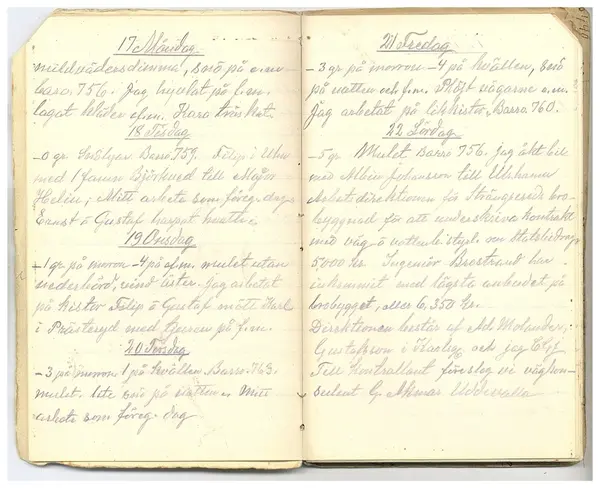 17 Måndag.
mildvädersdimma, snö på e.m.
baro. 756. Jag hyvlat på f.m.
lagat kläder e.m. Klara
18 Tisdag
-0 gr. Baro 759. Filip i
med 1 famn Björkved till Major
Helin, Mitt arbete som föreg. dag
Ernst o Gustaf
19 Onsdag
-1 gr. på morron -4 på e.m. mulet utan
nederbörd, vind öster. Jag arbetat
på kistor Filip o Gustaf mött Karl
i med tjuren på f.m.
20 Torsdag
-3 på morron 1 på kvällen, Baro. 763.
mulet. lite snö på natten. Mitt
arbete som föreg. dag
21 Fredag
-3 gr. på morron -4 på kvällen, snö
på natten och f.m. vägarne e.m.
Jag arbetat på likkistor, Barro. 760.
22 Lördag.
-5 gr. Mulet. Barro 756. jag åkt bil
med Albin Johansson till Ulrihamn
Arbetsdirektionen för bro-
byggnad för att underskriva kontrakt
med väg o vattenb. styrl. om Statsbidrag
5,000 kr. Ingeniör Brostrand har
inkommit med lägsta anbudet på
brobygget, eller 6,350 kr.
Direktionen består af Ad. Molander,
Gustafsson i och jag
Till Kontrollant föreslog vi vägkon-
sulent G. Uddevalla